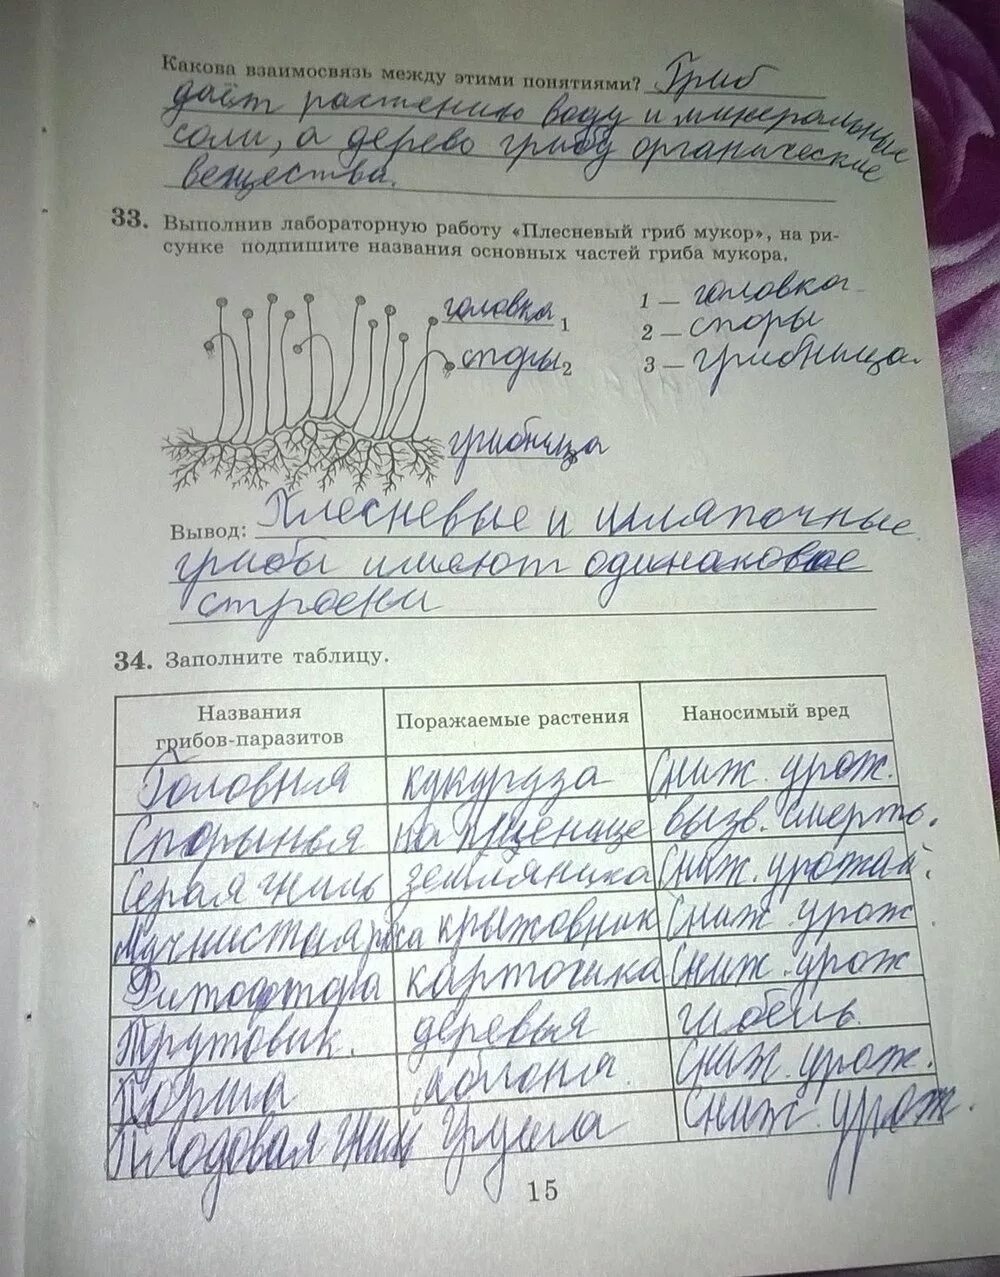 Какова взаимосвязь между этими понятиями? Гриб
даёт растению воду и минеральные
соли, а дерево грибу органические
вещества.
33. Выполнив лабораторную работу «Плесневый гриб мукор», на ри-
сунке подпишите названия основных частей гриба мукора.
головка 1
споры 2
грибница
1 — головка
2 — споры
3 — грибница
Вывод: Плесневые и шляпочные
грибы имеют одинаковое
строени
34. Заполните таблицу.
Названия грибов-паразитов Поражаемые растения Наносимый вред
Головня кукуруза сниж. урож.
Спорынья на пшенице вызв. смерть.
Серая гниль земляника сниж. урожай.
Мучнистая рса крыжовник сниж. урож
Фитофтора картошка сниж. урож
Трутовик. деревья гибель.
Парша яблоня. сниж. урож.
Плодовая гнил груша сниж. урож.
15